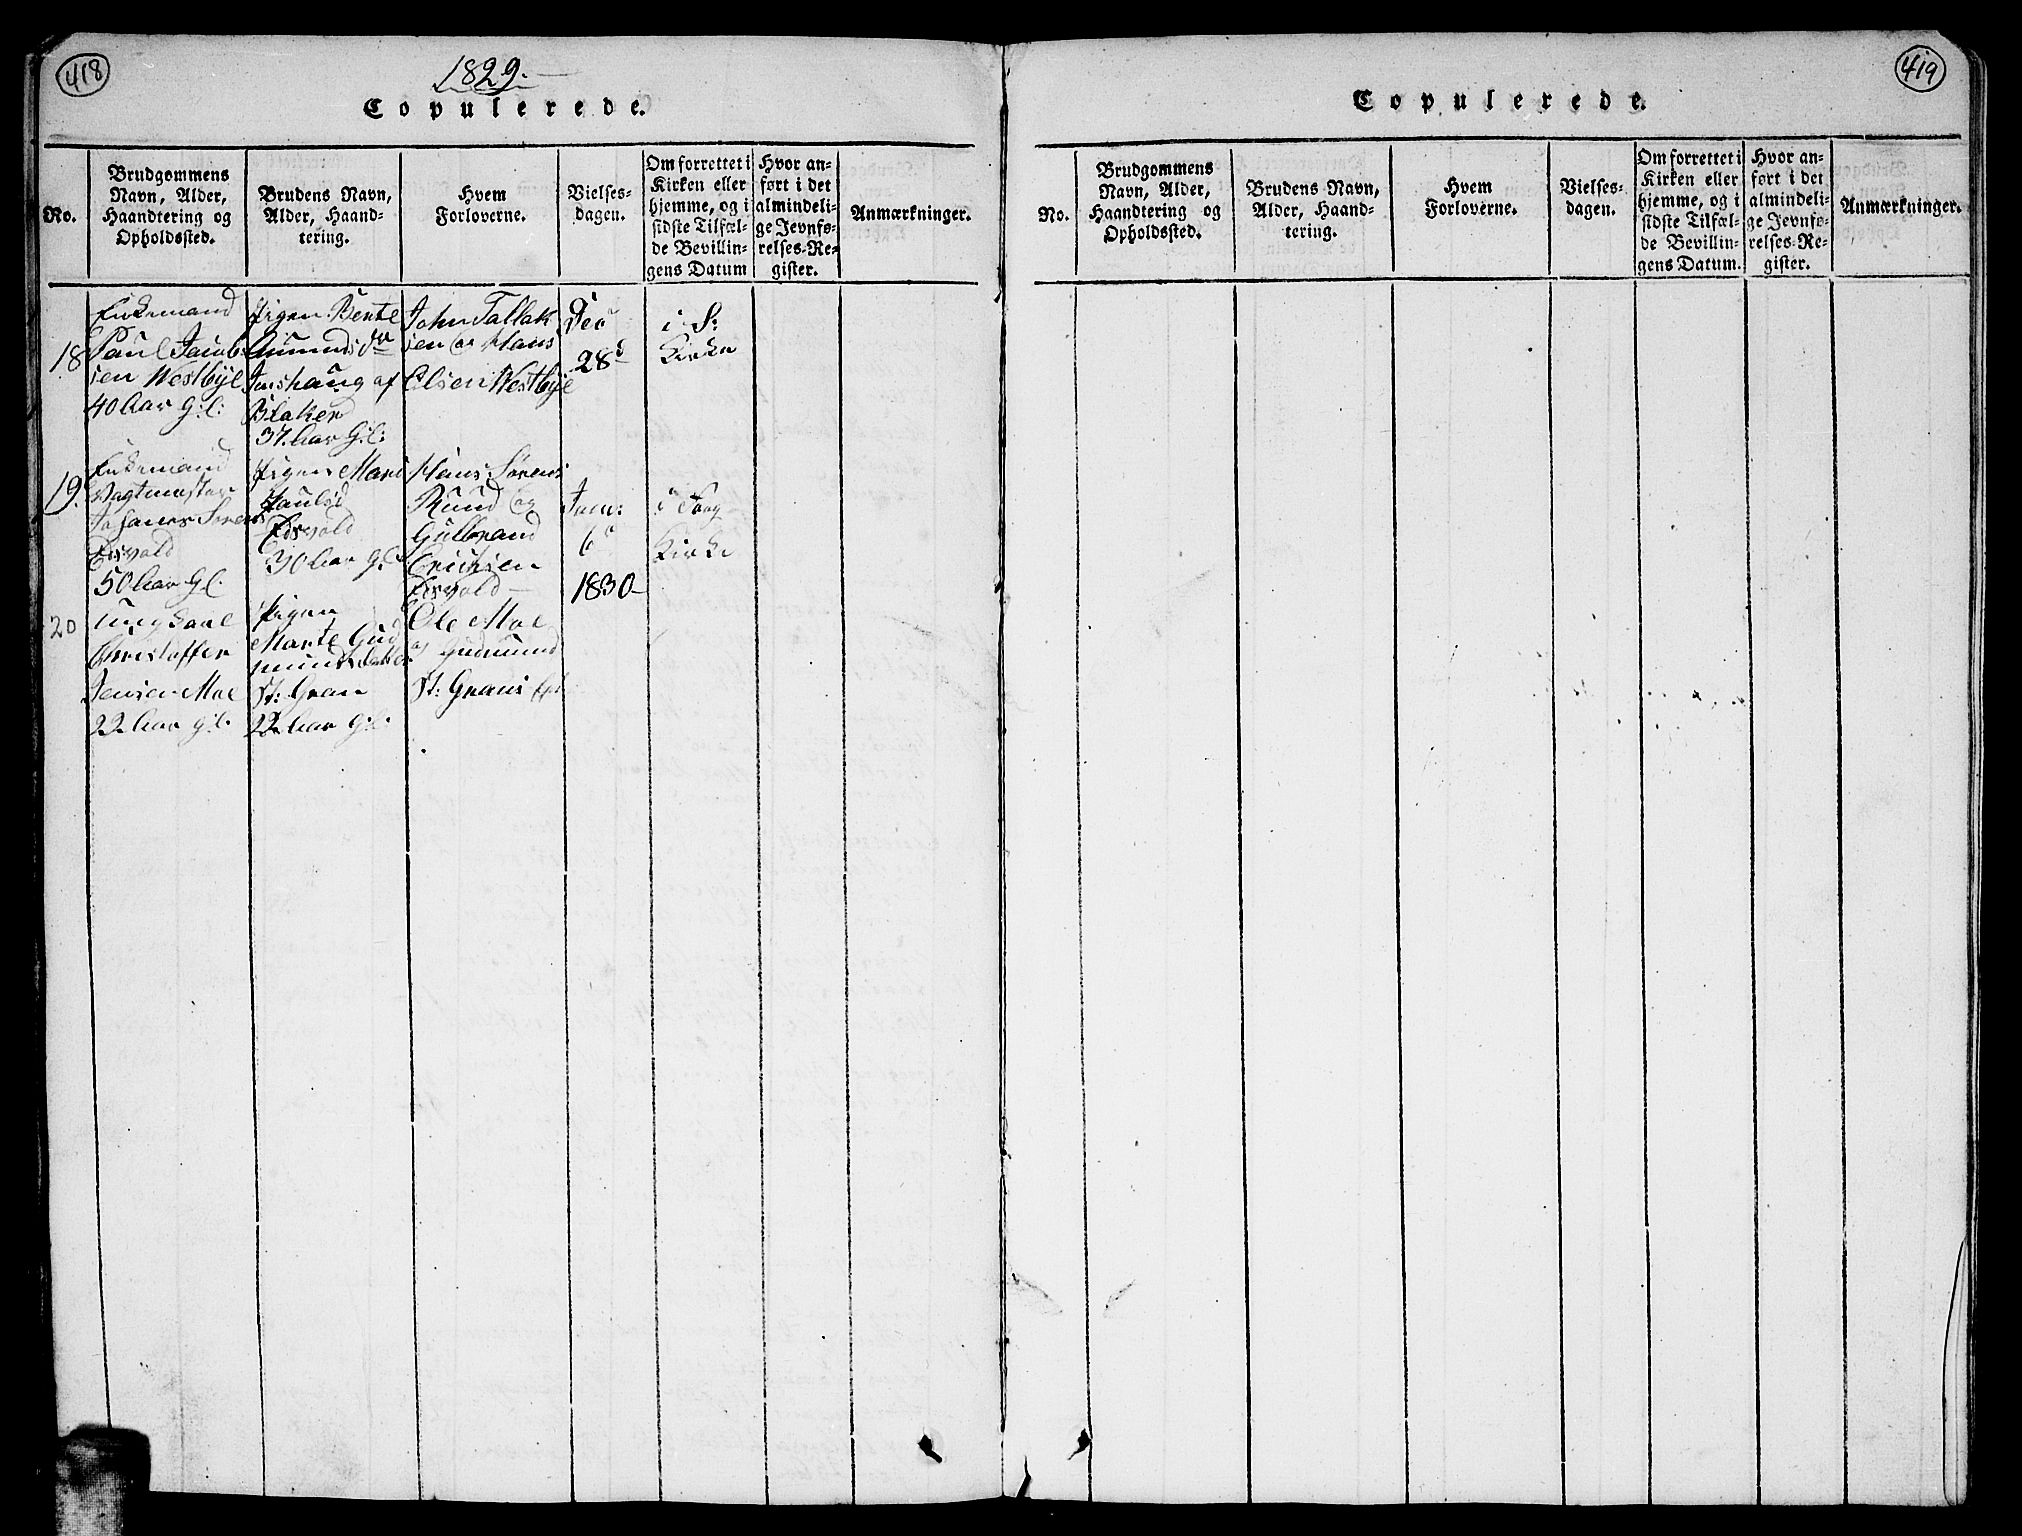 418
1829.
Copulerede.
No.
Brudgommens Navn, Alder, Haandtering og Opholdssted.
Brudens Navn, Alder, Haand-
tering.
Hvem
Forloverne.
Vielses-
dagen.
Om forrettet i
Kirken eller
hjemme, og i
sidste Tilfæl-
de Bevillin-
gens Datum
Hvor an-
ført i det
almindeli-
ge Jevnfø-
relses-Re-
gister.
Anmærkninger.
18
Enkemand
Paul Jacob-
sen Westbÿe
40 Aar gl:
Pigen Bente
Amunds dr
af
Blaker
37 Aar Gl:
John Tallak
sen og Hans
Olsen Westbÿe
Dec
28d
i S:
Kirke
19.
Enkemand
Vagtmester
Johanes Sørens
Eisvold
50 Aar Gl.
Pigen Mari
Paulsd
Eisvold
30 Aar Gl
Hans Sørens
Ruud og
Gulbrand
Erichsen
Eisvold
Jan:
6
1830
i
Kirke
20
ungkarl
Christoffer
Jensen Moe
22 Aar gl.
Pigen
Marte Gud
mundsdatter
St: Gran
22 Aar Gl.
Ole Moe
og Gudmund
St: Grans
419
Copulerede.
No.
Brudgommens
Navn, Alder,
Haandtering og
Opholdssted.
Brudens Navn,
Alder, Haand-
tering.
Hvem
Forloverne.
Vielses-
dagen.
Om forrettet i
Kirken eller
hjemme, og i
sidste Tilfæl-
de Bevillin-
gens Datum.
Hvor an-
ført i det
almindeli-
ge Jevnfø-
relses-Re-
gister.
Anmærkninger.